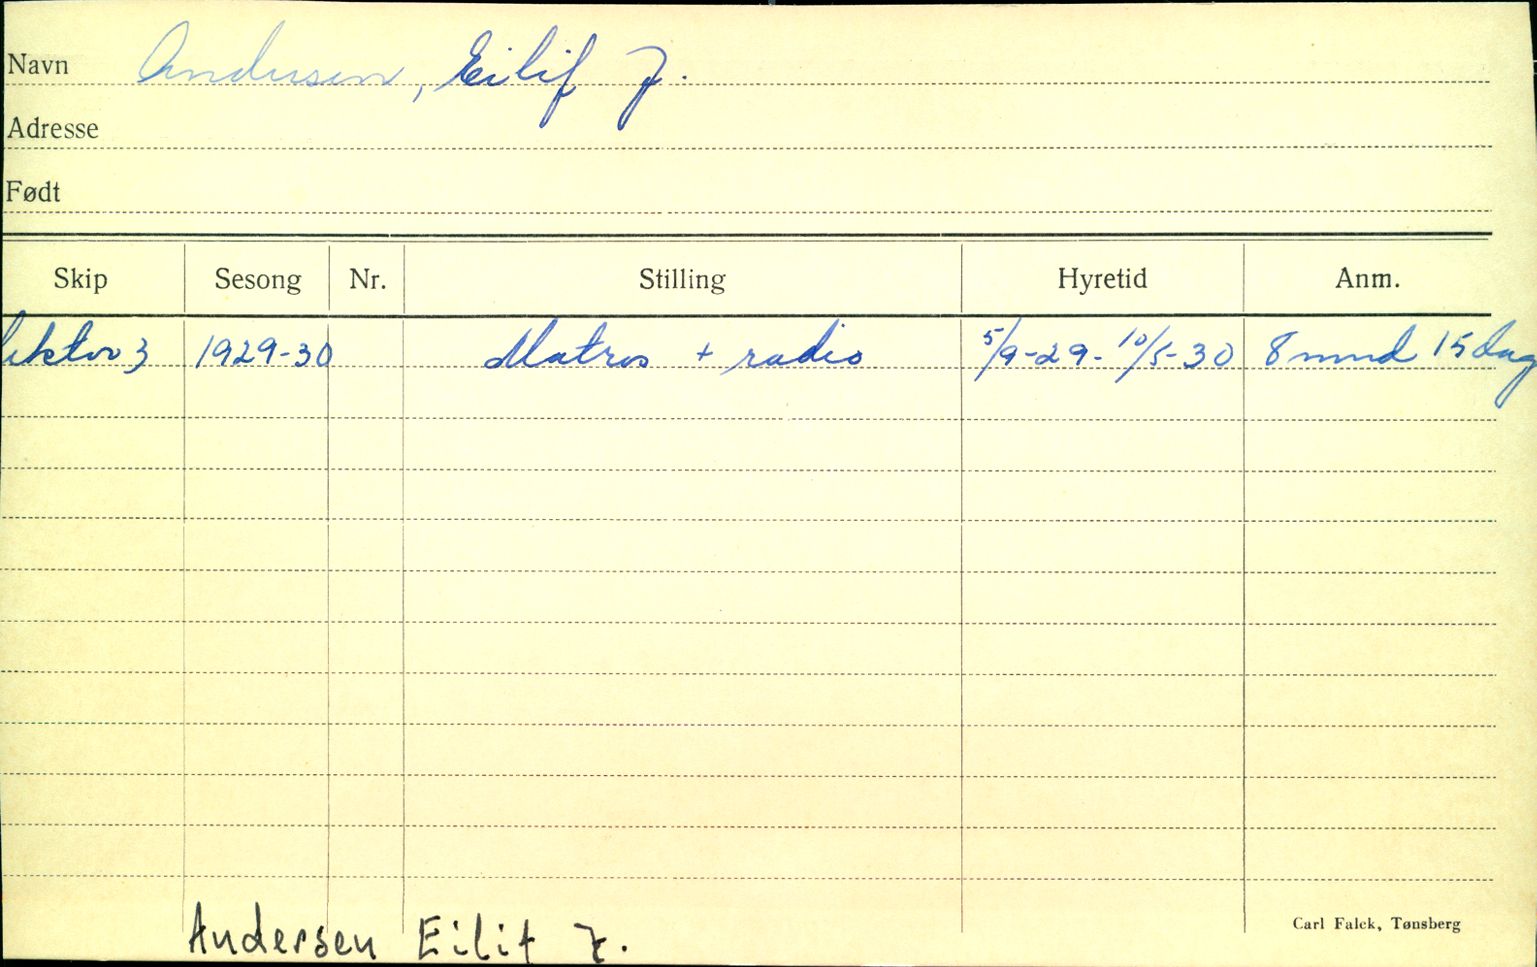 Navn Andersen, Eilif J.
Adresse
Født
Skip Sesong Nr. Stilling Hyretid Anm.
lektor 3 1929-30 Matros + radio 5/9-29- 10/5-30 8 mnd 15 dag
Andersen Eilif J.
Carl Falck, Tønsberg